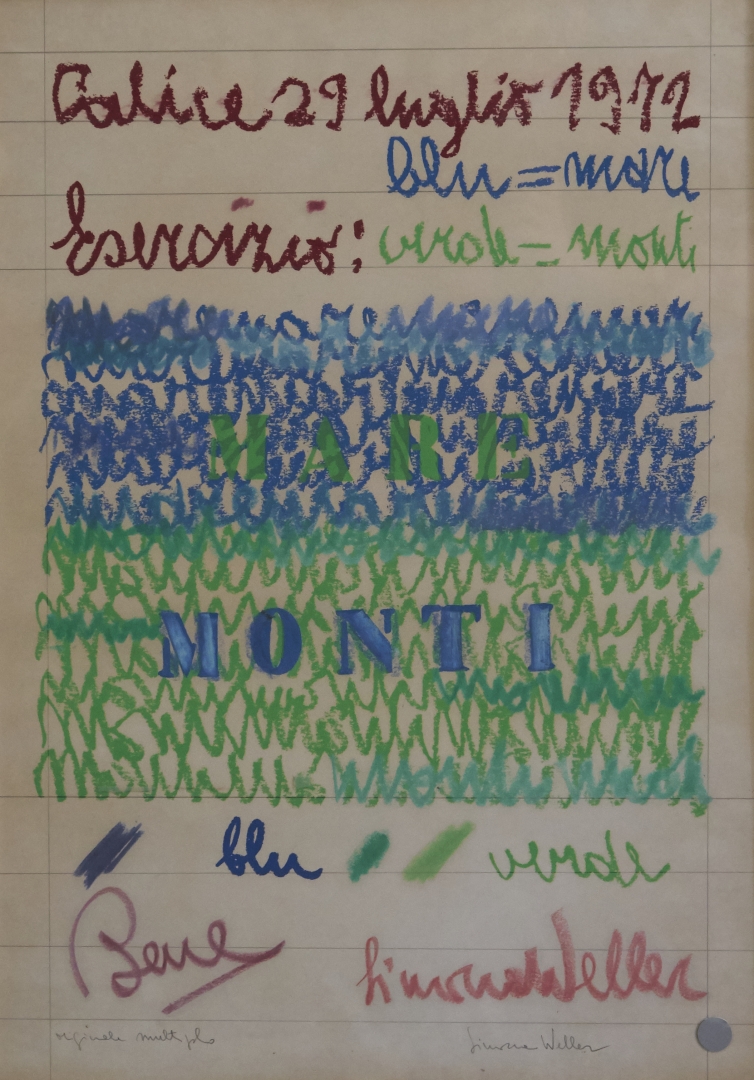 Calice 29 luglio 1972
blu = mare
Esercizio: verde = monti
MARE
MONTI
blu verde
Bene Simona Weller
originale multiplo Simona Weller